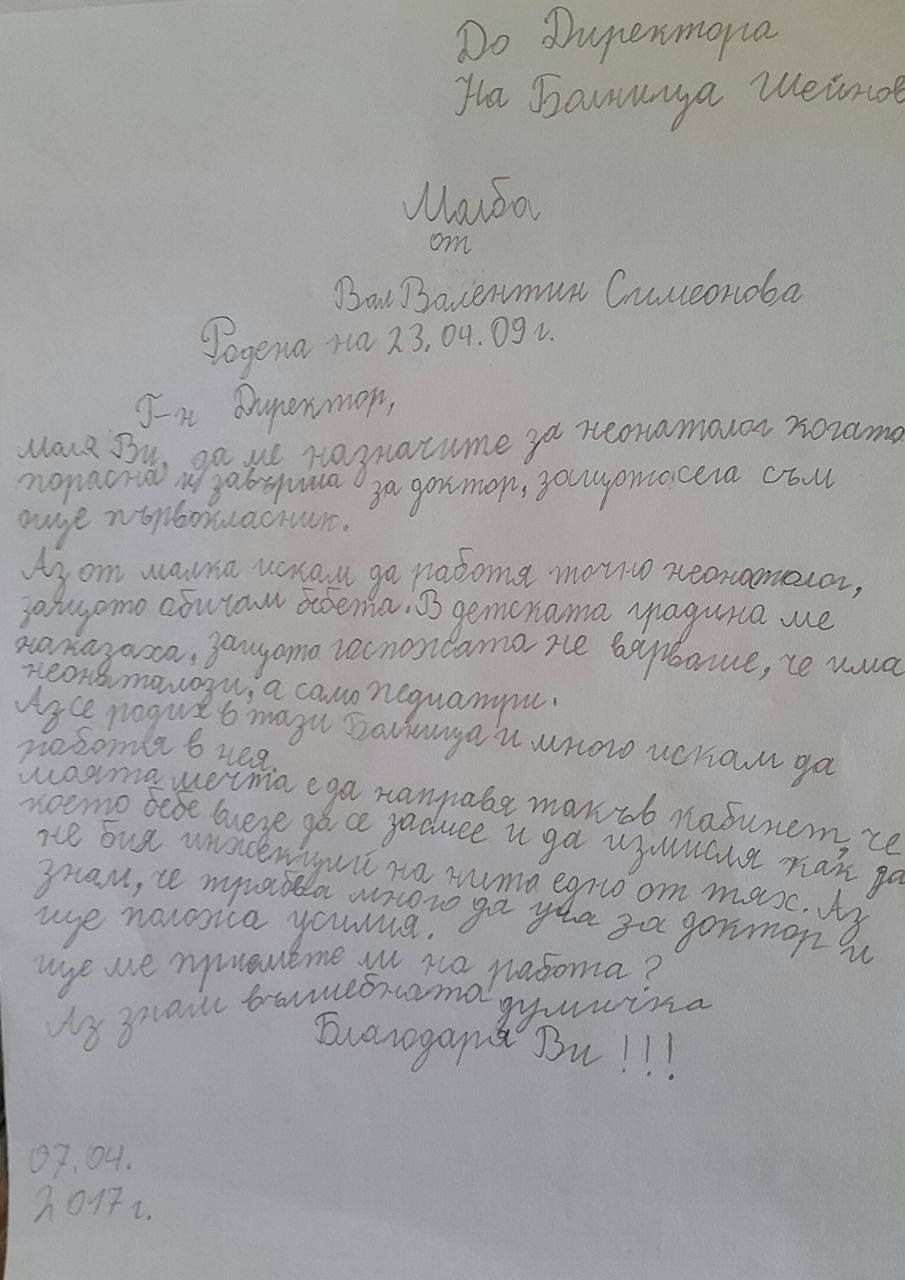 До Директора
На Болница Шейнов
Малба
от
Вал Валентин Симеонова
Родена на 23.04.09г.
Г-н Директор,
моля Ви, да ме назначите за неонатолог когато
порасна и завърша за доктор, защото сега съм
още първокласник.
Аз от малка искам да работя точно неонатолог,
защото обичам бебета. В детската градина ме
наказаха, защото госпожата не вярваше, че има
неонаталози, а само педиатри.
Аз се родих в тази Болница и много искам да
работя в нея.
моята мечта е да направя такъв кабинет, че
което бебе влезе да се засмее и да измисля как да
не бия инжекций на нито едно от тях. Аз
знам, че трябва много да уча за доктор и
ще положа усилия.
ще ме приемете ли на работа?
Аз знам вълшебната думичка
Благодаря Ви!!!
07.04.
2017г.